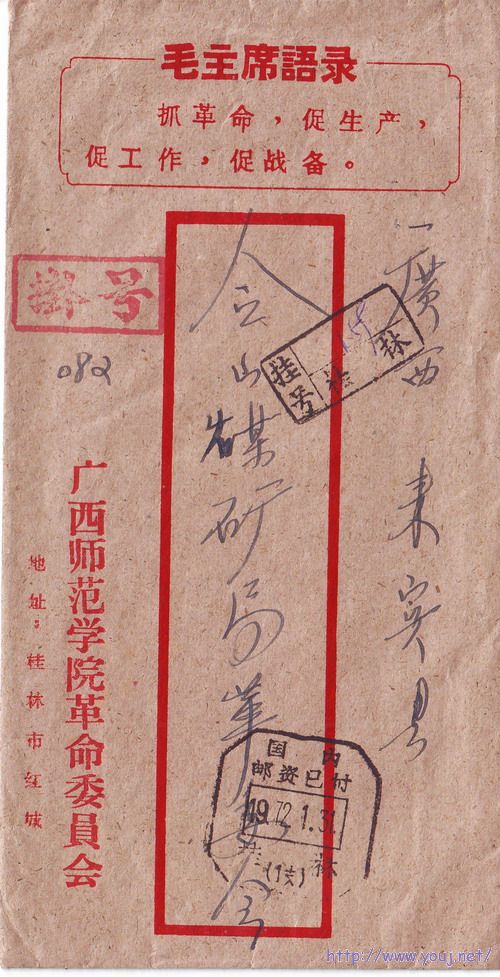 毛主席語录
抓革命，促生产，
促工作，促战备。
广西来宾县
合山煤矿局革委会
掛号
082
挂号
桂林
广西师范学院革命委員会
地址：桂林市红城
国内
邮资已付
1972.1.31.
http://www.youj.net/